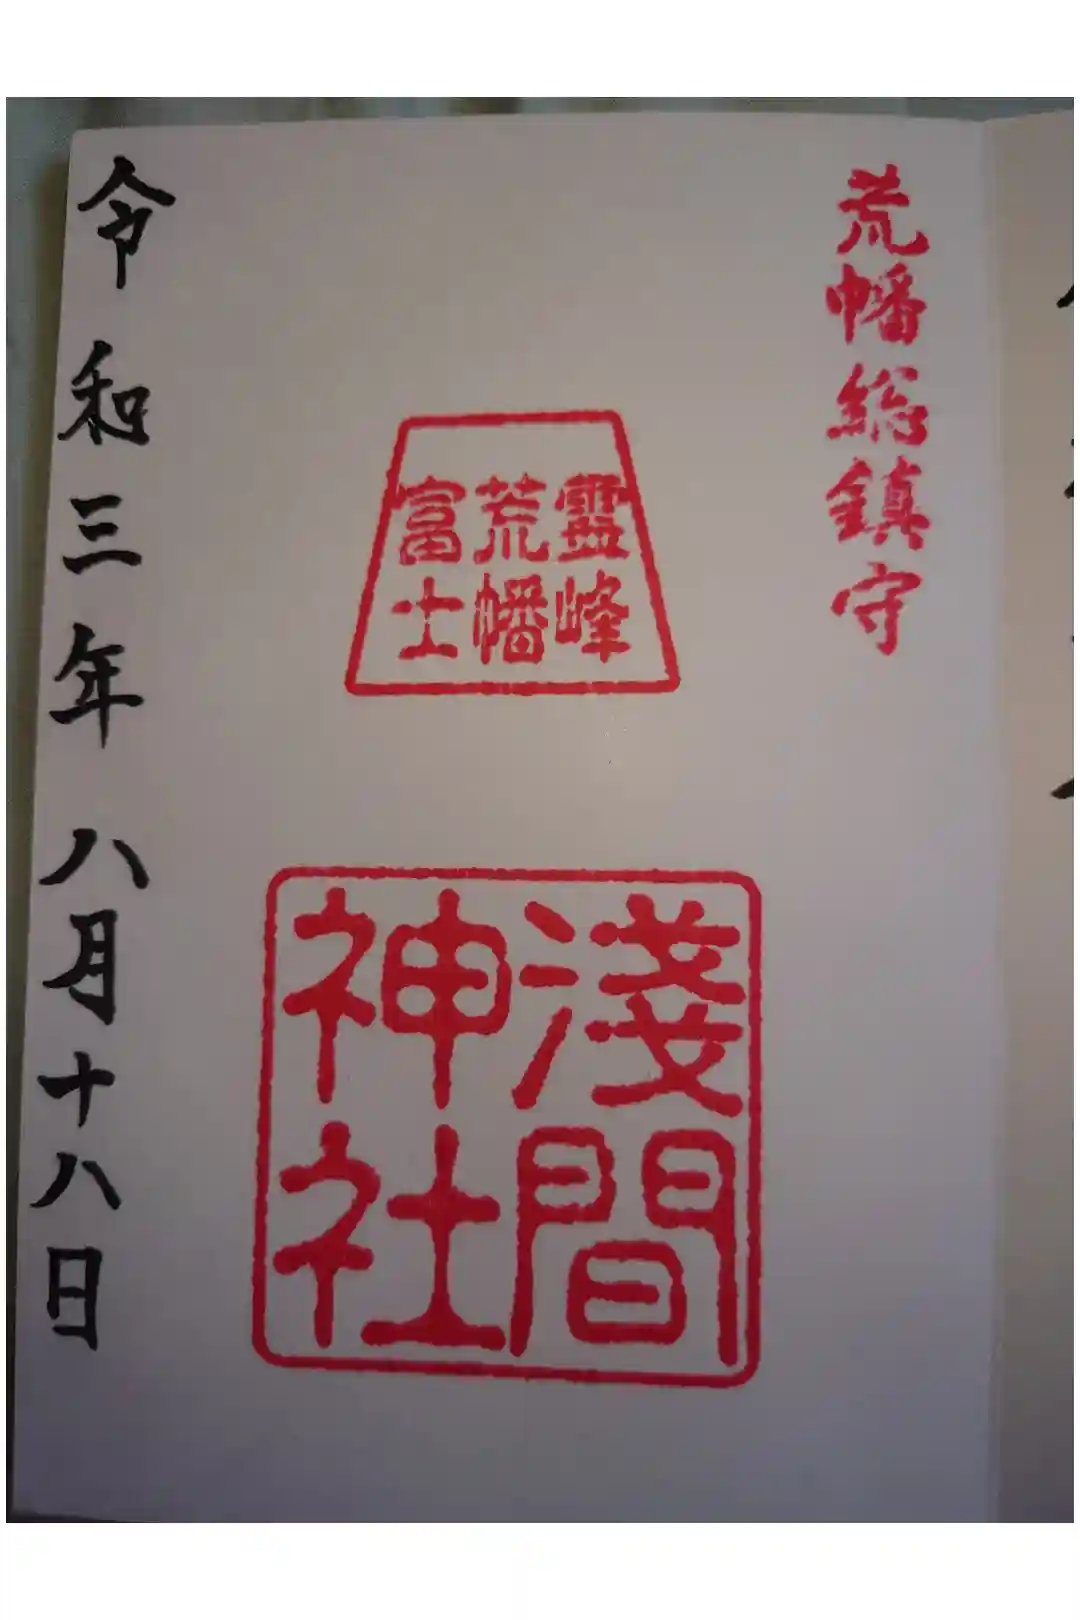 荒幡総鎮守
靈峰
荒幡
富士
淺間
神社
令和三年八月十八日